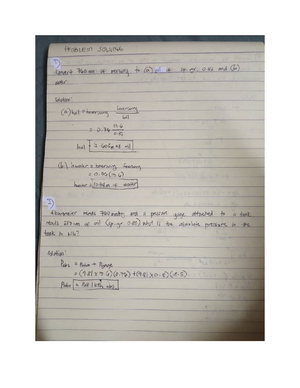 PROBLEM SOLVING
1)
Convert 760 mm of mercury to (a) oil of sp. gr. 0.82 and (b)
water.
Solution:
(a) hoil = hmercury Smercury
Soil
= 0.76 13.6
0.82
hoil = 12.60 m of oil
(b) hwater = hmercury Smercury
= 0.76 (13.6)
hwater = of water
2)
A barometer reads 760 mmHg and a pressure gage attached to a tank
reads cm of oil (sp. gr. 0.80). What is the absolute pressure in the
tank in kPa?
Solution:
Pabs = Patm + Pgage
= (9.81 x 13.6) (0.76) + (9.81 x 0.8) (8.5)
Pabs = kPa abs